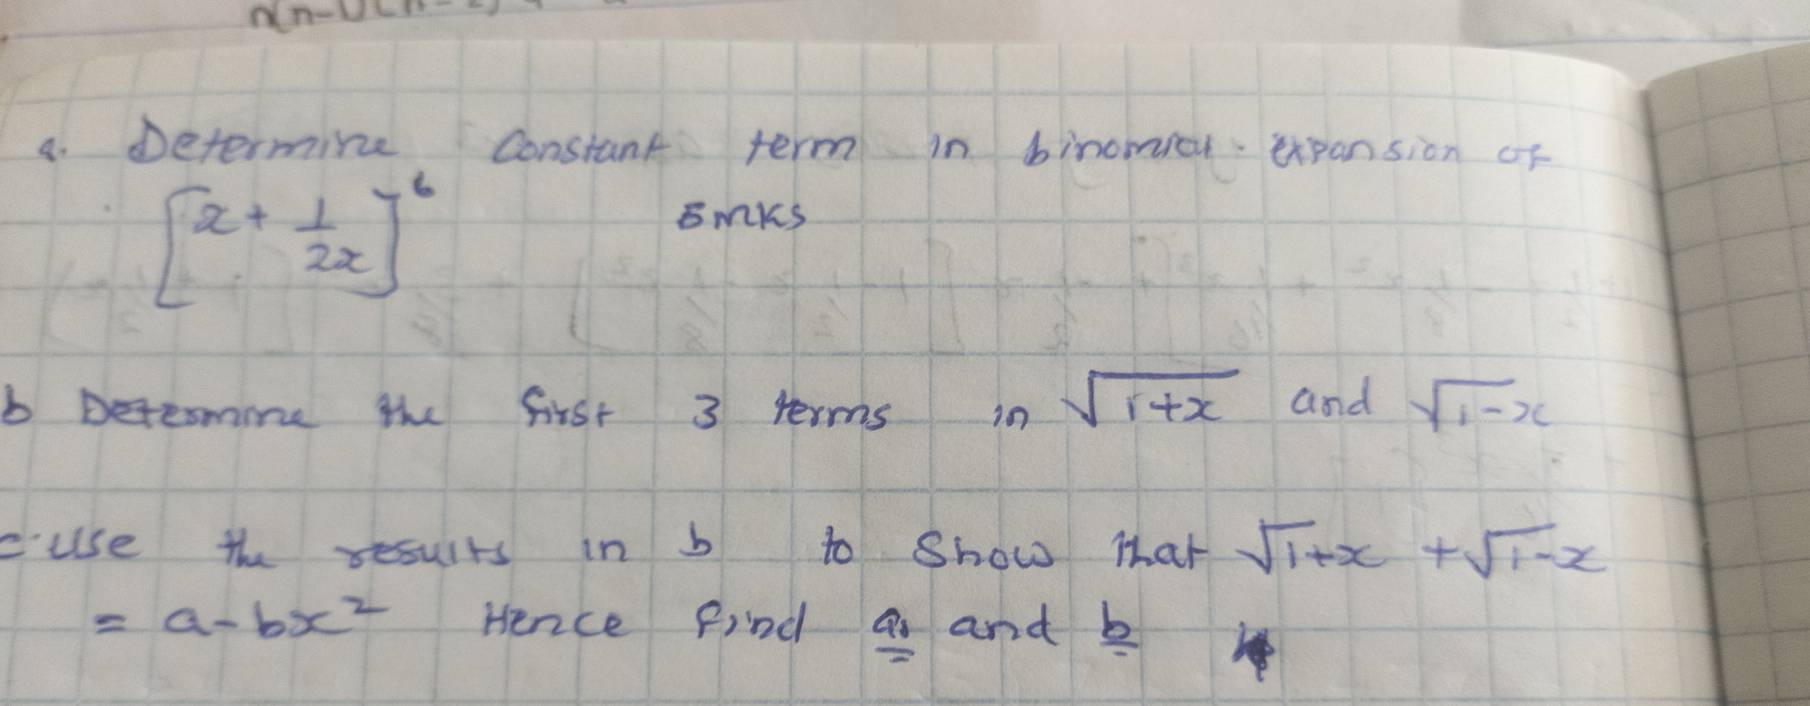 a. Determine constant term in binomial expansion of
[x + 1/2x]^6 5mks
b Determine the first 3 terms in √1+x and √1-x
c. use the results in b to show that √1+x + √1-x
= a - bx² Hence find a and b